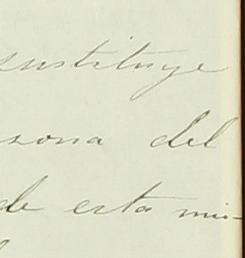 sustituye
sona del
de esta mis-